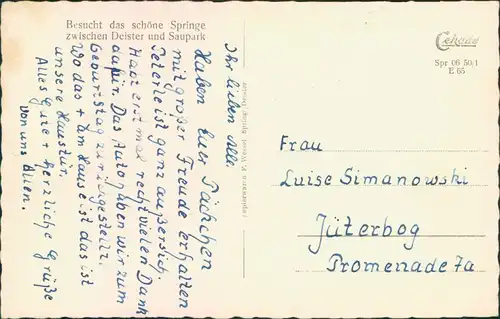 Besucht das schöne Springe
zwischen Deister und Saupark
Cekade
Spr 06 50/1
E 65
Ihr lieben Alle.
Haben Euer Päckchen
mit großer Freude erhalten
Peterle ist ganz außersich.
Habt erstmal recht vielen Dank
dafür. Das Auto gaben wir zum
Geburtstag zurzeigestellt.
Wo das + am Hause ist das ist
unsere Haustür.
Alles Gute + herzliche Grüße
von uns Allen.
Frau
Luise Simanowski
Jüterbog
Promenade 7a